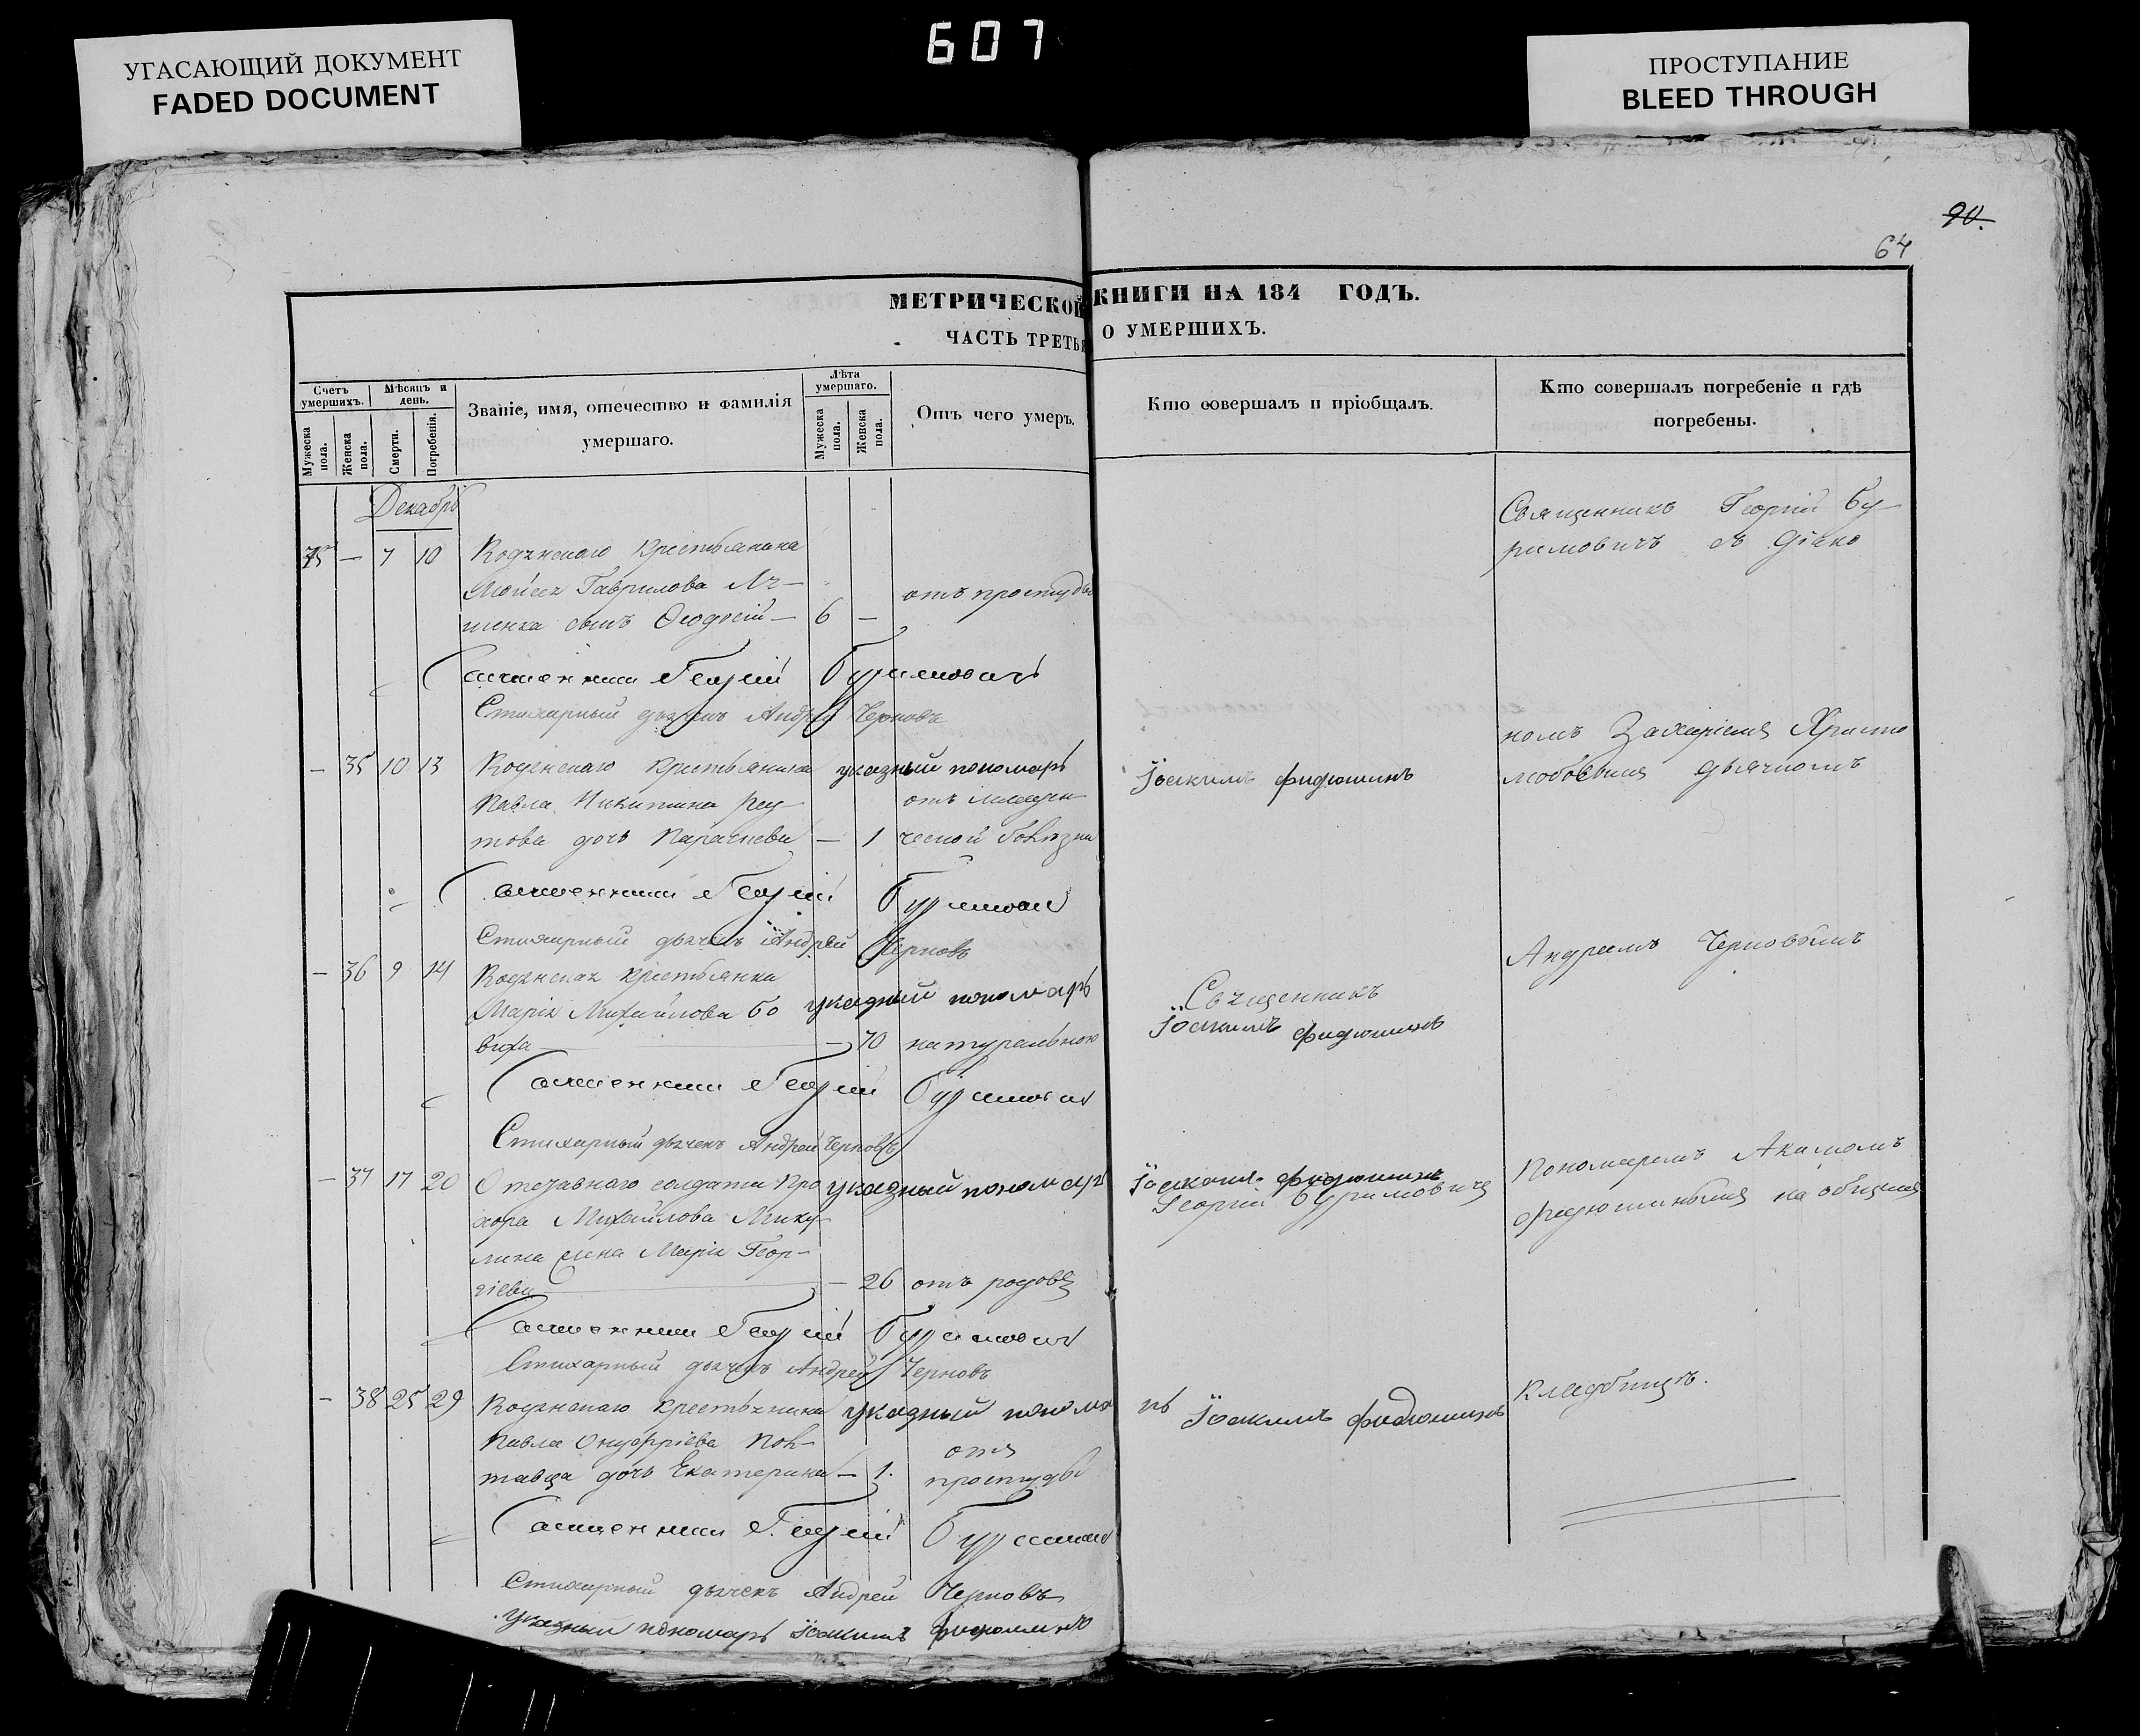 607
УГАСАЮЩИЙ ДОКУМЕНТ
FADED DOCUMENT
ПРОСТУПАНИЕ
BLEED THROUGH
90.
64
МЕТРИЧЕСКОЙ КНИГИ НА 184 ГОДЪ.
ЧАСТЬ ТРЕТЬЯ О УМЕРШИХЪ.
Счетъ умершихъ.
Мужеска пола.
Женска пола.
Мѣсяцъ и день.
Смерти.
Погребенія.
Званіе, имя, отечество и фамилія
умершаго.
Лѣта умершаго.
Мужеска пола.
Женска пола.
Отъ чего умеръ.
Кто совершалъ и пріобщалъ.
Кто совершалъ погребеніе и гдѣ
погребены.
Декабрь
75 — 7 10 крестьянина
Гаврилова
сынъ Ѳеодосій — 6 — отъ простуды
Священникъ Георгій Буримовичъ
Стихарный дьячекъ Андрей Черновъ
— 35 10 13 крестьянина указный пономарь Іоакимъ Фидюшинъ
Павла Никитина
това дочь Параскева — 1 отъ младенческой болѣзни
Священникъ Георгій Буримовичъ
Стихарный дьячекъ Андрей Черновъ
— 36 9 14 крестьянка
Марія Михайлова указный пономарь Іоакимъ Фидюшинъ
— 70 натуральною
Священникъ Георгій Буримовичъ
Стихарный дьячекъ Андрей Черновъ
— 37 17 20 солдата Про указный пономарь Іоакимъ Фидюшинъ
хора Михайлова Мику
лина жена Марія Геор-
гіева — 26 отъ родовъ
Священникъ Георгій Буримовичъ
Стихарный дьячекъ Андрей Черновъ
— 38 25 29 крестьянина указный пономарь Іоакимъ Фидюшинъ
Павла Онуфріева Пол-
тавца дочь Екатерина — 1. отъ простуды
Священникъ Георгій Буримовичъ
Стихарный дьячекъ Андрей Черновъ
указный пономарь Іоакимъ Фидюшинъ
Священникъ
Георгій Буримовичъ
Священникъ Георгій Бу-
римовичъ съ Діако
номъ Захаріемъ Христо
любовымъ дьячкомъ
Андреемъ Черновымъ
Пономаремъ Акимомъ
Фидюшинымъ на общемъ
кладбищѣ.